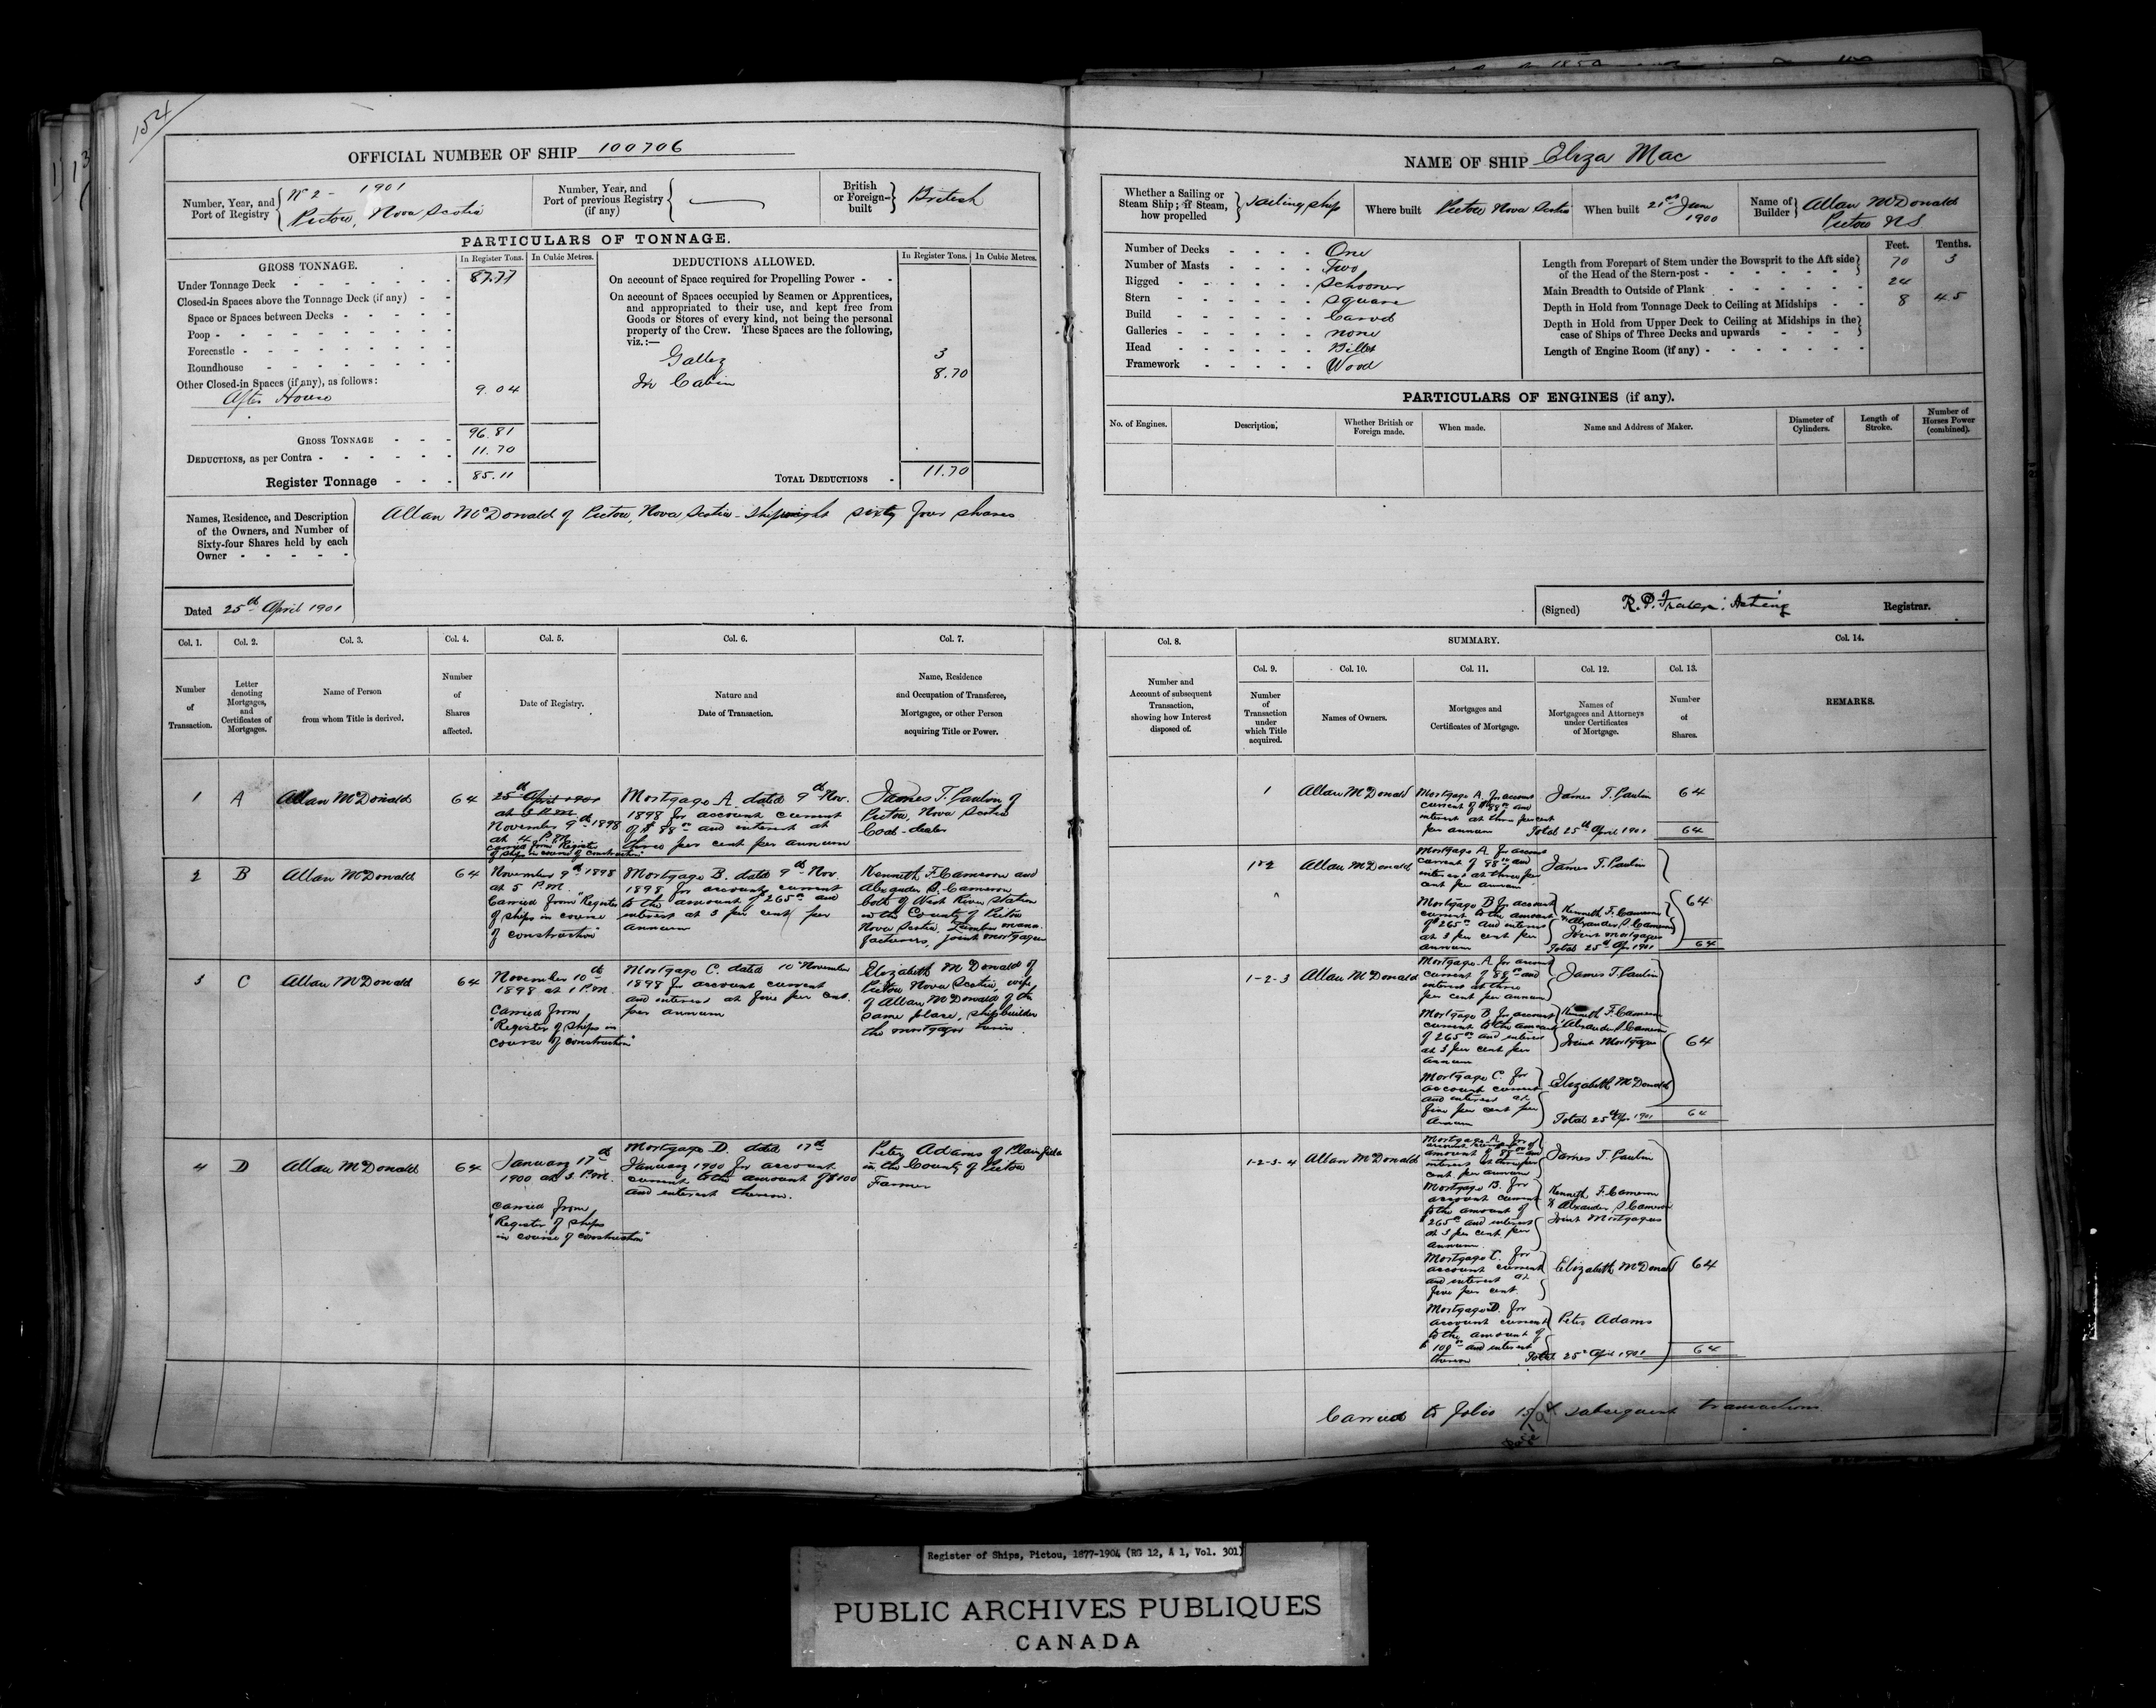 154
OFFICIAL NUMBER OF SHIP 100706
Number, Year, and Port of Registry
No 2 - 1901
Pictou, Nova Scotia
Number, Year, and Port of previous Registry (if any)
British or Foreign-built
British
PARTICULARS OF TONNAGE.
GROSS TONNAGE.
In Register Tons.
In Cubic Metres.
Under Tonnage Deck 87.77
Closed-in Spaces above the Tonnage Deck (if any)
Space or Spaces between Decks
Poop
Forecastle
Roundhouse
Other Closed-in Spaces (if any), as follows:
After House 9.04
GROSS TONNAGE 96.81
DEDUCTIONS, as per Contra 11.70
Register Tonnage 85.11
DEDUCTIONS ALLOWED.
In Register Tons.
In Cubic Metres.
On account of Space required for Propelling Power
On account of Spaces occupied by Seamen or Apprentices,
and appropriated to their use, and kept free from
Goods or Stores of every kind, not being the personal
property of the Crew. These Spaces are the following,
viz.:—
Galley 3
In Cabin 8.70
TOTAL DEDUCTIONS 11.70
Names, Residence, and Description
of the Owners, and Number of
Sixty-four Shares held by each
Owner
Allan McDonald of Pictou, Nova Scotia - Shipwright sixty four shares
Dated 25th April 1901
Col. 1.
Number of Transaction.
Col. 2.
Letter denoting Mortgages, and Certificates of Mortgages.
Col. 3.
Name of Person from whom Title is derived.
Col. 4.
Number of Shares affected.
Col. 5.
Date of Registry.
Col. 6.
Nature and Date of Transaction.
Col. 7.
Name, Residence and Occupation of Transferee, Mortgagee, or other Person acquiring Title or Power.
1
A
Allan McDonald
64
25th April 1901
at
November 9th 1898
at 4 P.M.
carried from "Register
of ships in course of construction"
Mortgage A. dated 9th Nov.
1898 for account current
of $88 00 and interest at
three per cent per annum
James T. Paulin of
Pictou, Nova Scotia
Coal-dealer
2
B
Allan McDonald
64
November 9th 1898
at 5 P.M.
Carried from "Register
of ships in course
of construction"
Mortgage B. dated 9th Nov.
1898 for account current
to the amount of 265 00 and
interest at 3 per cent per
annum
Kenneth F. Cameron and
Alexander S. Cameron
both of West River Station
in the County of Pictou
Nova Scotia, Lumber manu-
facturers, joint mortgagees
3
C
Allan McDonald
64
November 10th
1898 at 1 P.M.
Carried from
"Register of ships in
course of construction"
Mortgage C. dated 10 November
1898 for account current
and interest at five per cent.
per annum
Elizabeth McDonald of
Pictou Nova Scotia, wife
of Allan McDonald of the
same place, shipbuilder
the mortgagor herein
4
D
Allan McDonald
64
January 17th
1900 at 3 P.M.
Carried from
"Register of ships
in course of construction"
Mortgage D. dated 17th
January 1900 for account
current to the amount of $100
and interest thereon.
Peter Adams of Plainfield
in the County of Pictou
Farmer
NAME OF SHIP Eliza Mac
Whether a Sailing or Steam Ship; if Steam, how propelled
Sailing ship
Where built Pictou Nova Scotia
When built 21st June 1900
Name of Builder
Allan McDonald
Pictou NS
Number of Decks One
Number of Masts Two
Rigged Schooner
Stern Square
Build Carvel
Galleries none
Head Billet
Framework Wood
Feet. Tenths.
Length from Forepart of Stem under the Bowsprit to the Aft side
of the Head of the Stern-post 70 3
Main Breadth to Outside of Plank 24
Depth in Hold from Tonnage Deck to Ceiling at Midships 8 45
Depth in Hold from Upper Deck to Ceiling at Midships in the
case of Ships of Three Decks and upwards
Length of Engine Room (if any)
PARTICULARS OF ENGINES (if any).
No. of Engines.
Description.
Whether British or Foreign made.
When made.
Name and Address of Maker.
Diameter of Cylinders.
Length of Stroke.
Number of Horses Power (combined).
(Signed) R. P. Fraser, Acting Registrar.
Col. 8.
Number and Account of subsequent Transaction, showing how Interest disposed of.
SUMMARY.
Col. 9.
Number of Transaction under which Title acquired.
Col. 10.
Names of Owners.
Col. 11.
Mortgages and Certificates of Mortgage.
Col. 12.
Names of Mortgagees and Attorneys under Certificates of Mortgage.
Col. 13.
Number of Shares.
Col. 14.
REMARKS.
1
Allan McDonald
Mortgage A. for account
current of $88 00 and
interest at three per cent
per annum
James T. Paulin
64
Total 25th April 1901
64
1 & 2
Allan McDonald
Mortgage A. for account
current of 88 00 and
interest at three per
cent per annum
James T. Paulin
Mortgage B for account
current to the amount
of $265 00 and interest
at 3 per cent per
annum
Kenneth F. Cameron
& Alexander S. Cameron
Joint mortgagees
64
Total 25th Apr 1901
64
1-2-3
Allan McDonald
Mortgage A. for account
current of $88 00 and
interest at three
per cent per annum
James T. Paulin
Mortgage B. for account
current to the amount
of 265 00 and interest
at 3 per cent per
annum
Kenneth F. Cameron
Alexander S. Cameron
Joint Mortgagees
64
Mortgage C. for
account current
and interest at
five per cent per
annum
Elizabeth McDonald
Total 25th Apr 1901
64
1-2-3-4
Allan McDonald
Mortgage A. for
amount of 88 00 and
interest at three per
cent per annum
James T. Paulin
Mortgage B. for
account current
to the amount of
265 00 and interest
at 3 per cent per
annum.
Kenneth F. Cameron
& Alexander S. Cameron
Joint Mortgagees
Mortgage C. for
account current
and interest at
five per cent.
Elizabeth McDonald
64
Mortgage D. for
account current
to the amount of
$100 00 and interest
thereon
Peter Adams
Total 25th April 1901
64
Carried to folio
Page 194
subsequent transactions
Register of Ships, Pictou, 1877-1904 (RG 12, A 1, Vol. 301)
PUBLIC ARCHIVES PUBLIQUES
CANADA